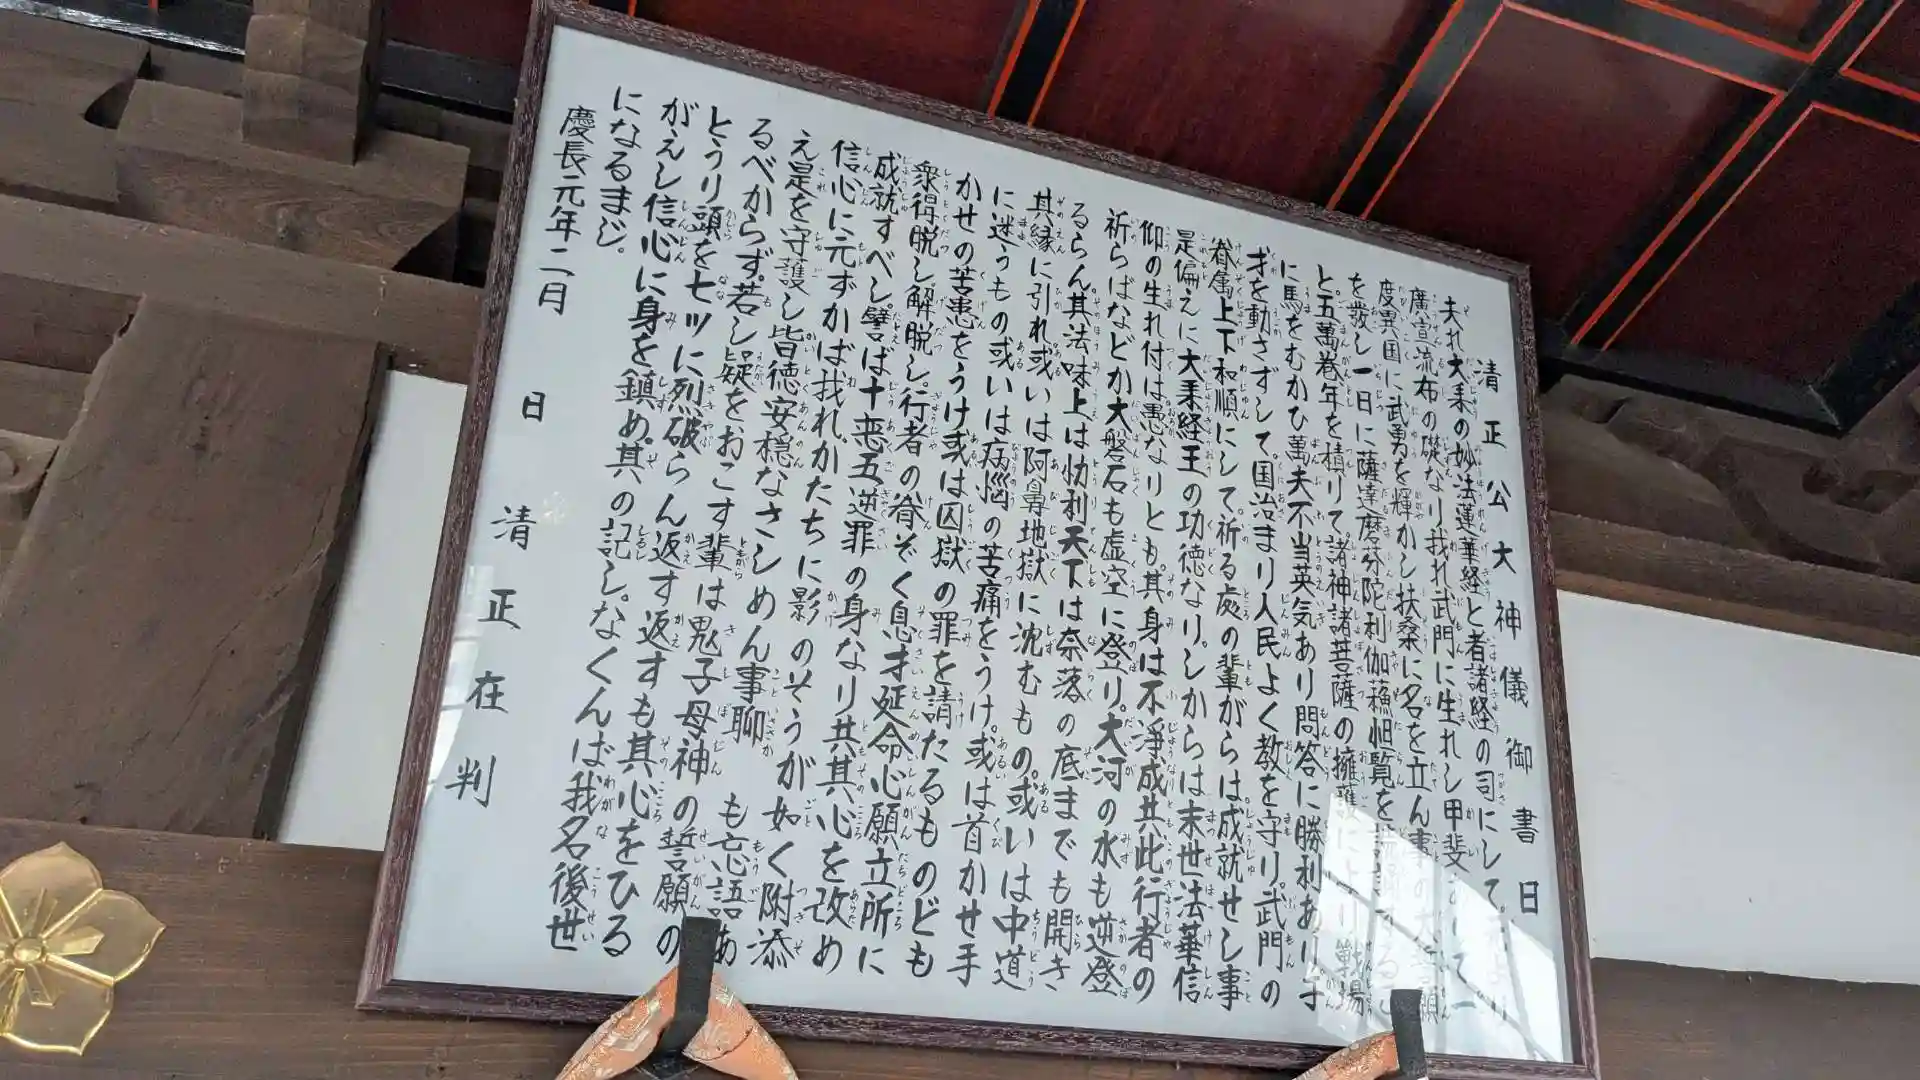 清正公大神儀御書曰
夫れ大乗の妙法蓮華経と者諸経の司にして
廣宣流布の礎なり我れ武門に生れし甲斐 して一
度異国に武勇を輝かし扶桑に名を立ん事の大誓願
を発し一日に薩達磨芬陀利伽蘓怛覧を
と五萬巻年を積りて諸神諸菩薩の擁護により戦場
に馬をむかひ萬夫不当英気あり問答に勝利あり干
才を動さずして国治まり人民よく教を守り武門の
眷属上下和順にして祈る処の輩がらは成就せし事
是偏えに大乗経王の功徳なりしからは末世法華信
仰の生れ付は愚なりとも其身は不淨成共此行者の
祈らばなどか大磐石も虚空に登り大河の水も逆登
るらん其法味上は忉利天下は奈落の底までも開き
其縁に引れ或いは阿鼻地獄に沈むもの或いは中道
に迷うもの或いは病悩の苦痛をうけ或は首かせ手
かせの苦患をうけ或は囚獄の罪を請たるものども
衆得脱し解脱し行者の眷ぞく息才延命心願立所に
成就すべし譬ば十悪五逆罪の身なり共其心を改め
信心に元ずかば我れかたちに影のそうが如く附添
え是を守護し皆徳安穏なさしめん事聊も忘語あ
るべからず若し疑をおこす輩は鬼子母神の誓願の
とうり頭を七ッに烈破らん返す返すも其心をひる
がえし信心に身を鎮め其の記しなくんば我名後世
になるまじ。
慶長元年二月 日 清正在判